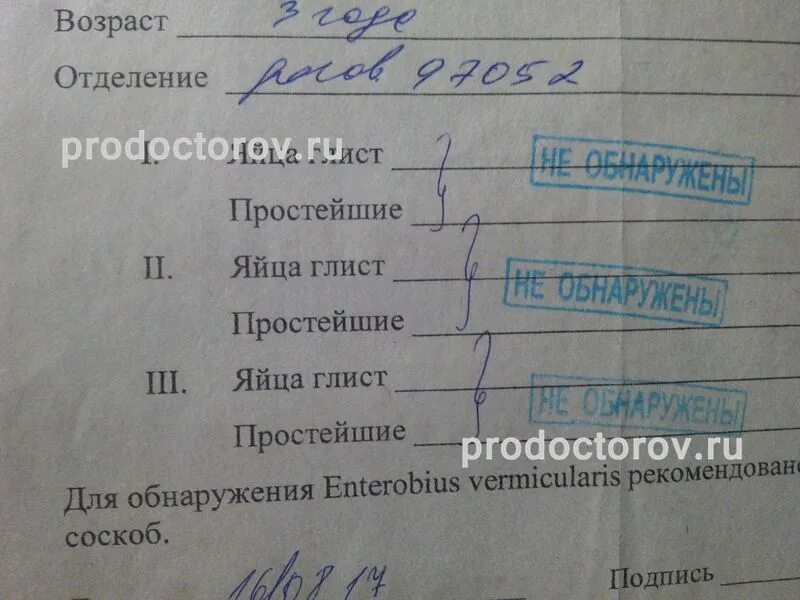 Возраст 3 года
Отделение 97052
prodoctorov.ru
I. Яйца глист НЕ ОБНАРУЖЕНЫ
Простейшие
II. Яйца глист НЕ ОБНАРУЖЕНЫ
Простейшие
III. Яйца глист НЕ ОБНАРУЖЕНЫ
Простейшие
prodoctorov.ru
Для обнаружения Enterobius vermicularis рекомендовано
соскоб.
16/08 17 Подпись